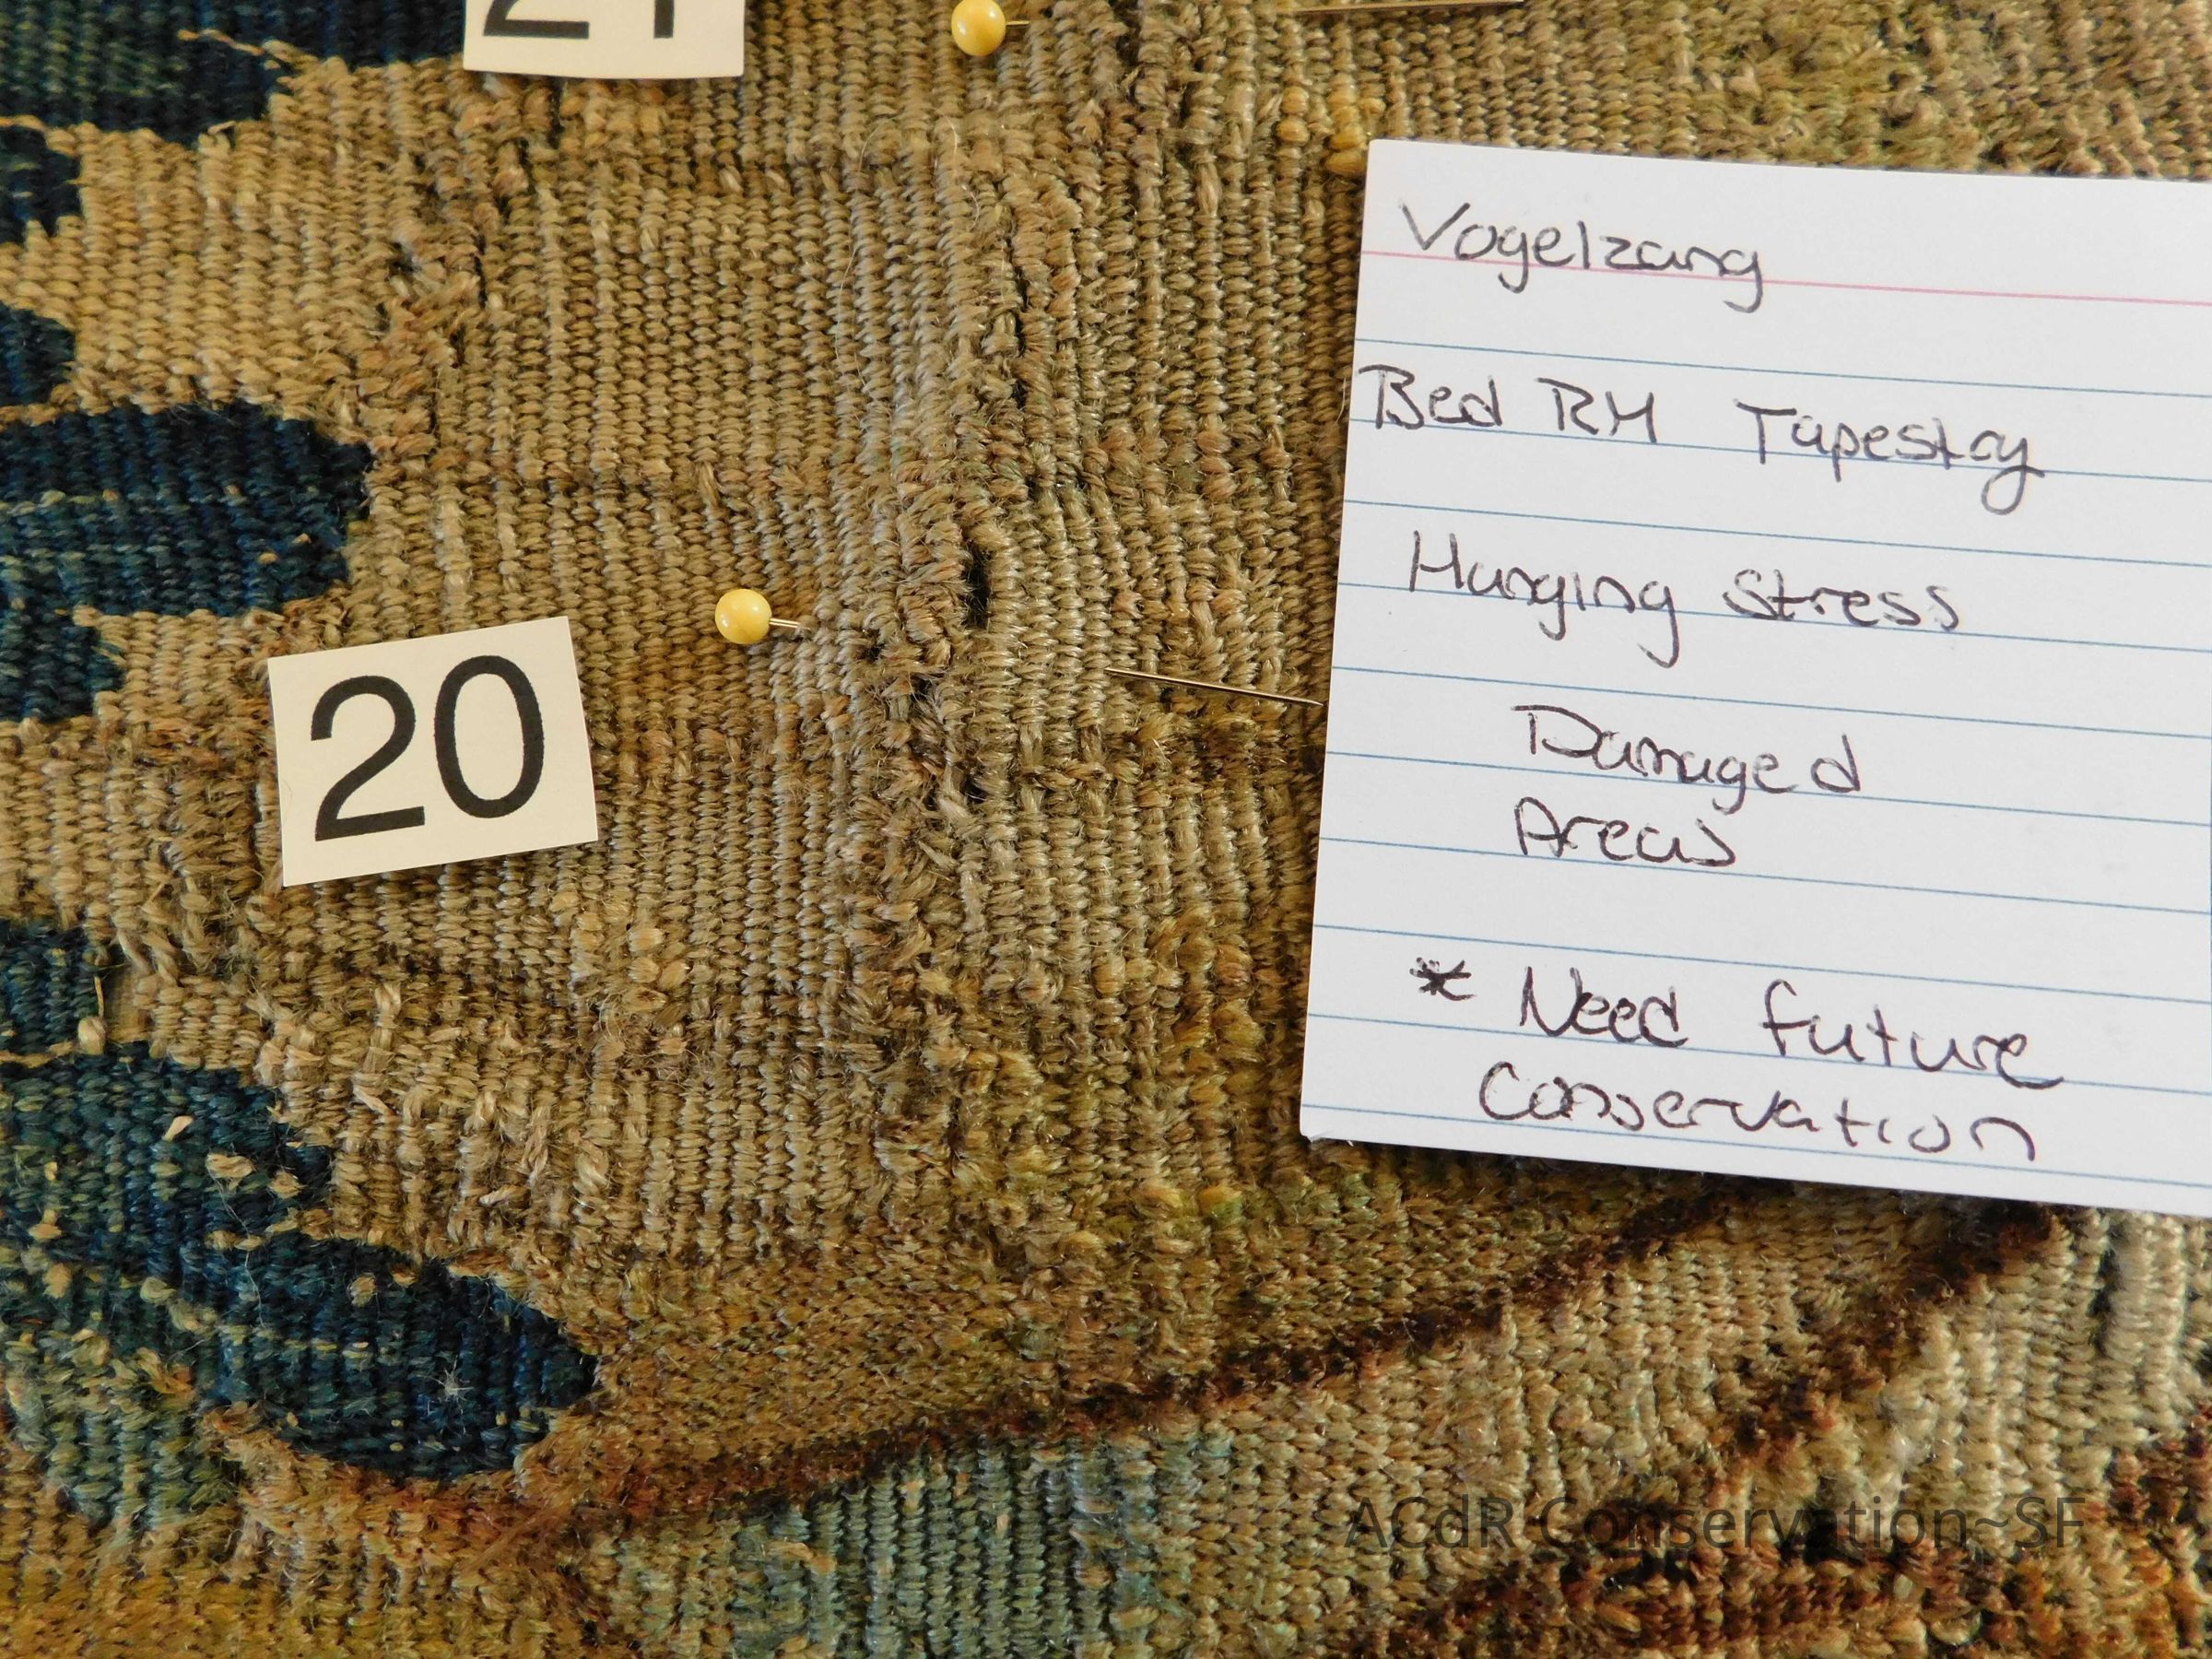 21
Vogelzang
Bed RM Tapestry
Hanging Stress
20
Damaged
Areas
* Need future
Conservation
ACdR Conservation~SF